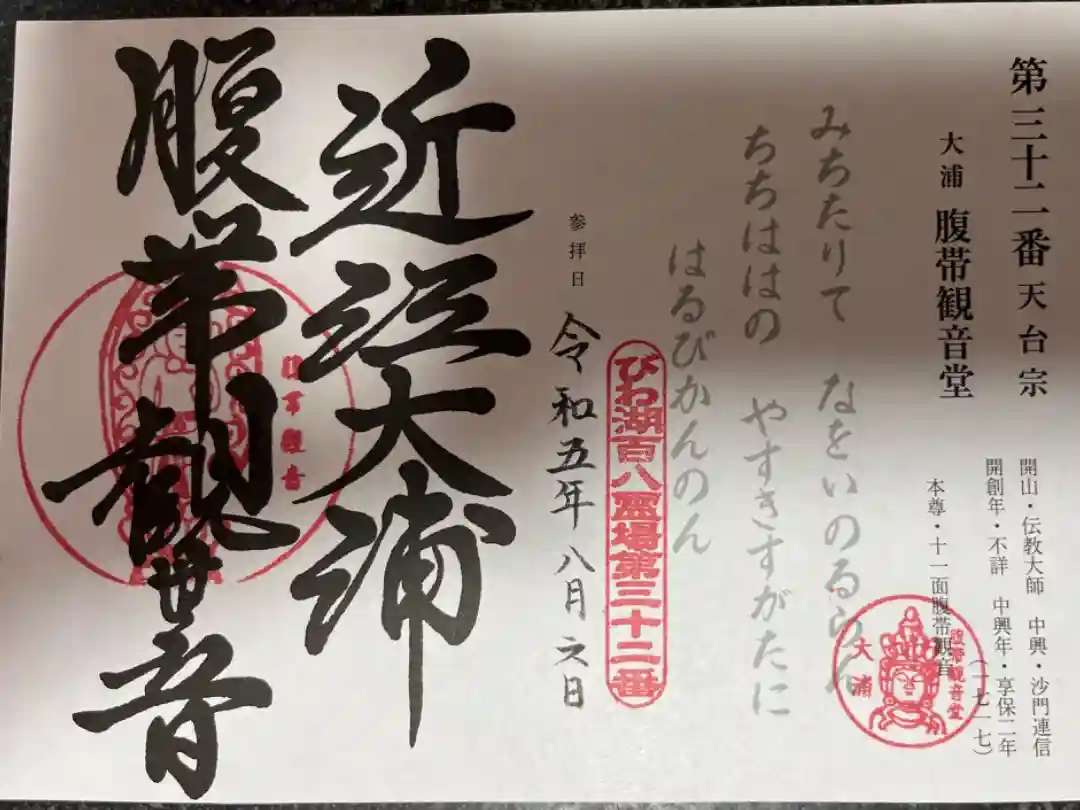 第三十二番 天台宗
大浦 腹帯観音堂
開山・伝教大師 中興・沙門連信
開創年・不詳 中興年・享保二年
(一七一七)
本尊・十一面腹帯観音
大浦
腹帯観音堂
みちたりて なをいのるらん
ちちははの やすきすがたに
はるびかんのん
びわ湖百八霊場第三十二番
参拝日 令和五年八月六日
近江大浦
腹帯観世音